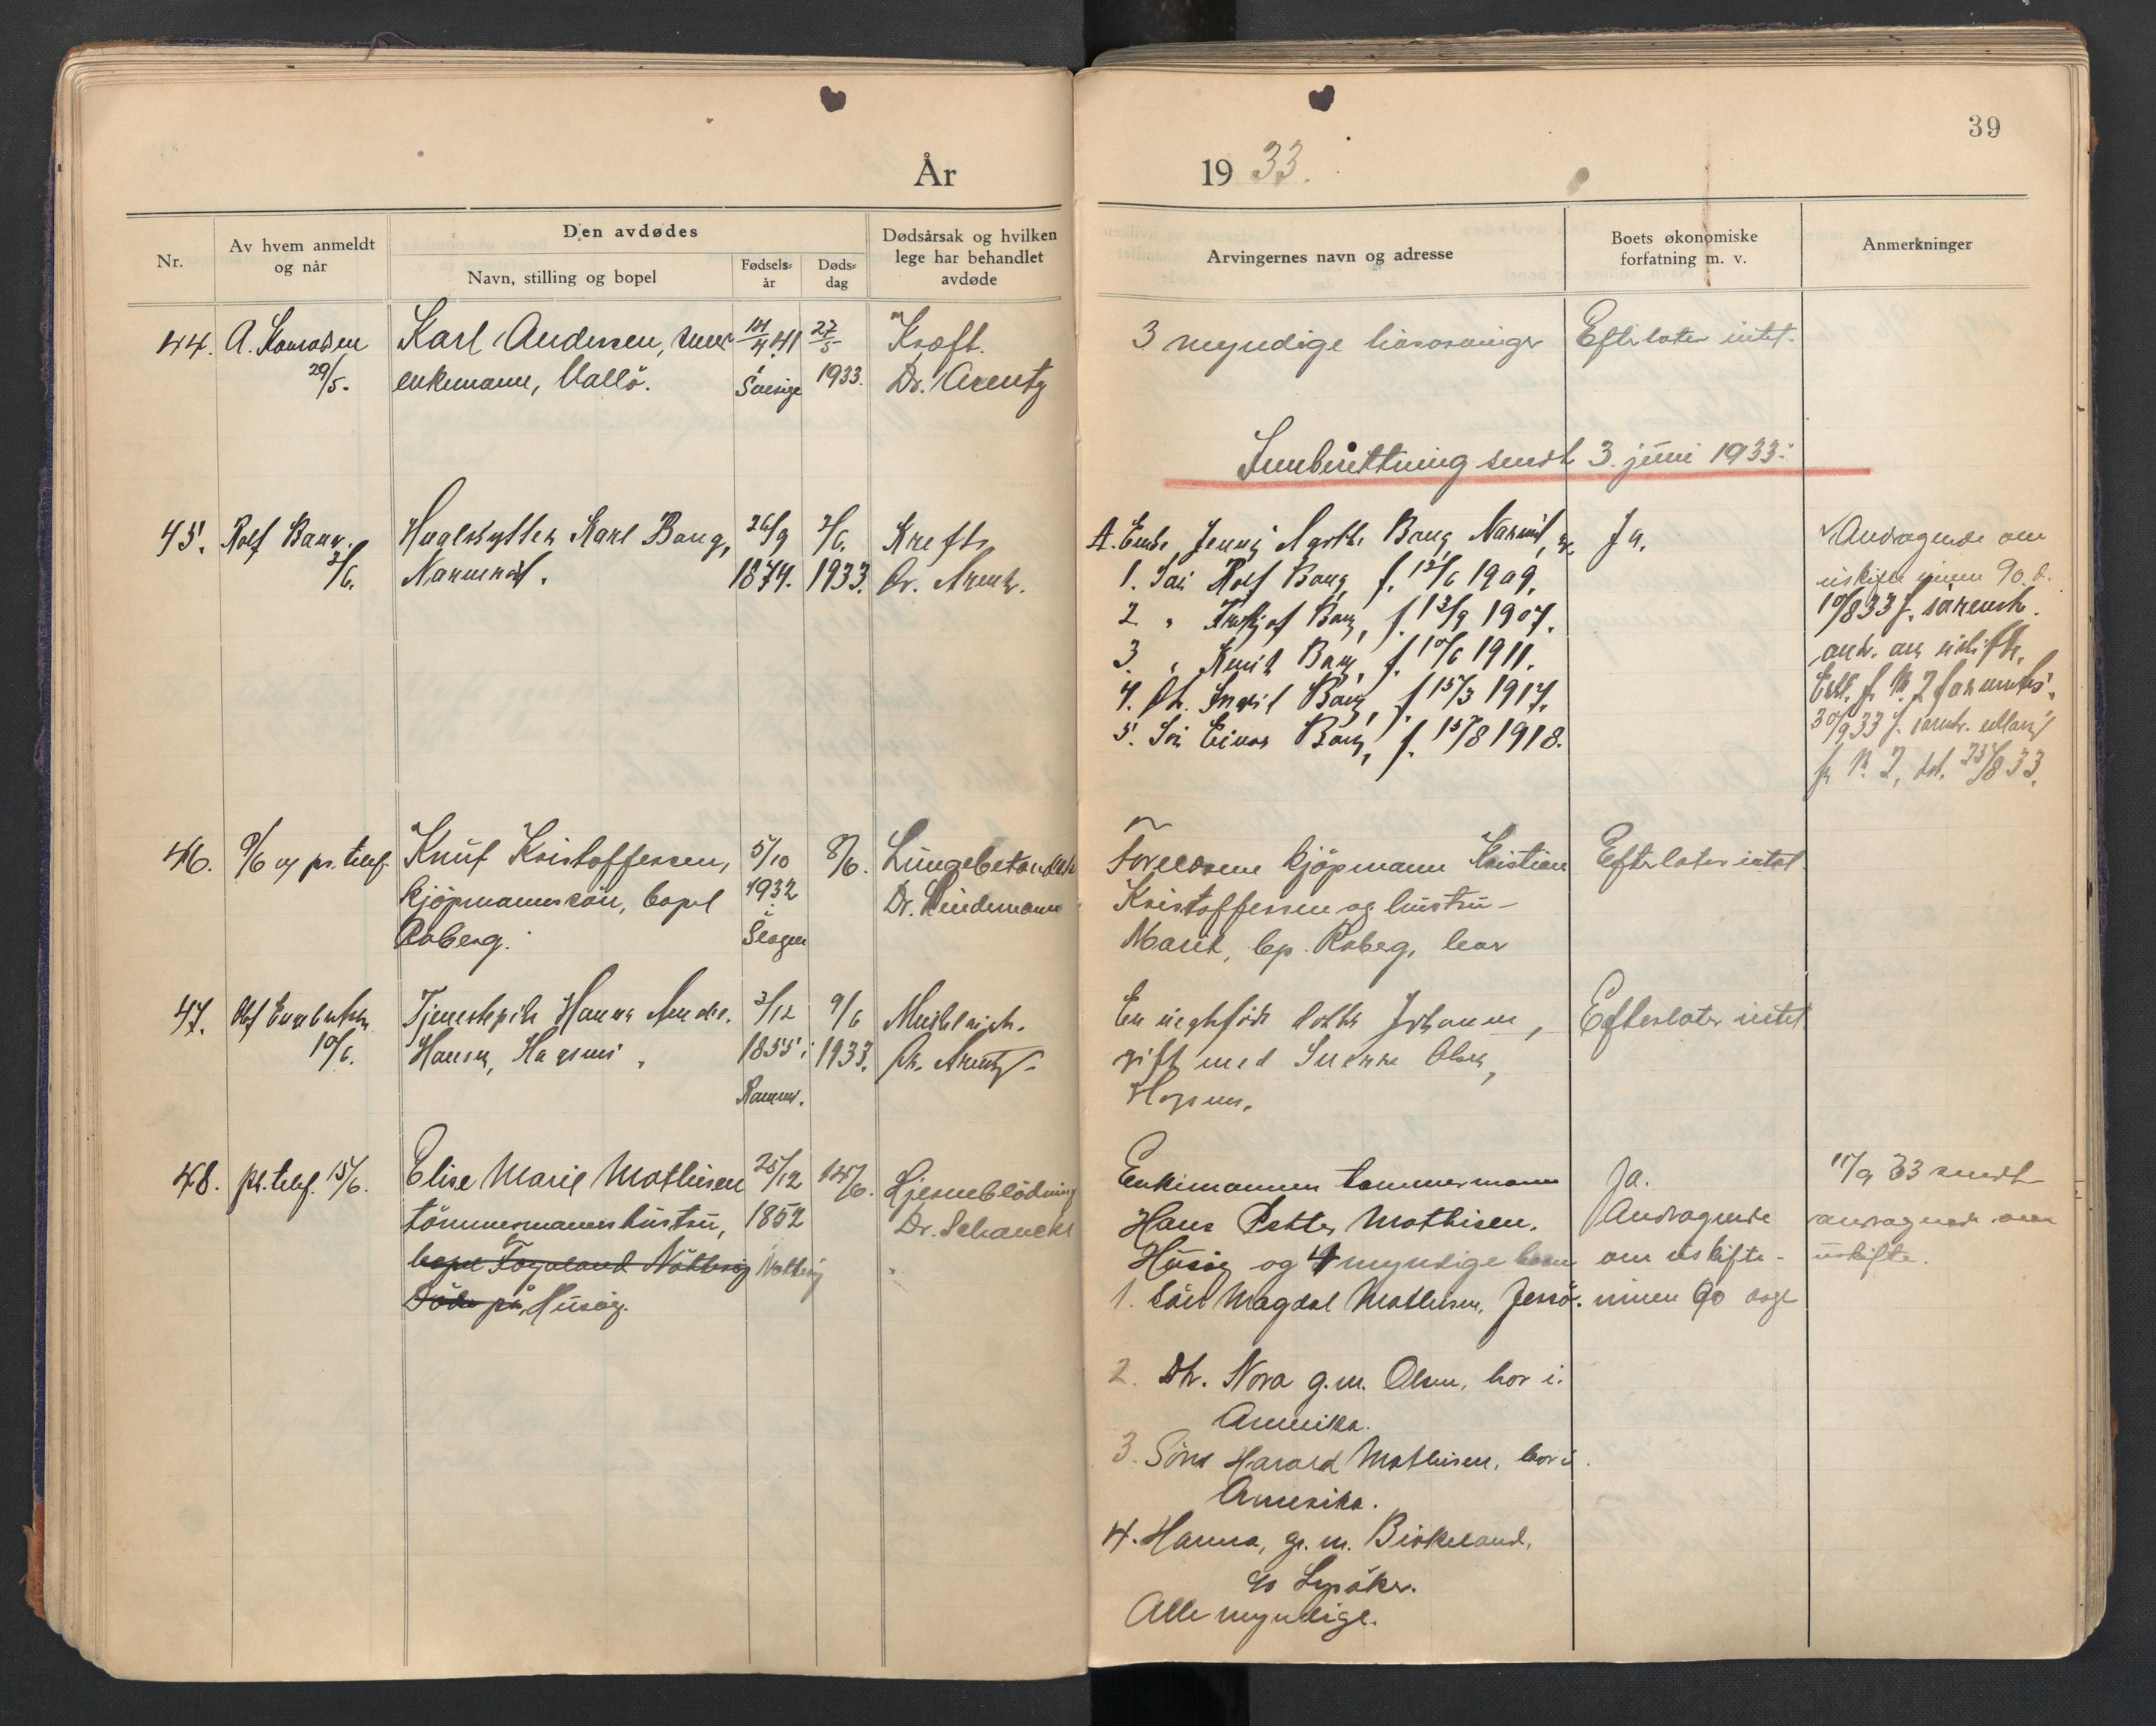 39
År 1933.
Nr.
Av hvem anmeldt
og når
Den avdødes
Navn, stilling og bopel
Fødsels-
år
Døds-
dag
Dødsårsak og hvilken
lege har behandlet
avdøde
Arvingernes navn og adresse
Boets økonomiske
forfatning m. v.
Anmerkninger
44.
29/5.
Karl Andersen,
enkemann, Vallö.
41
Sverige
27/5
1933.
Kræft.
Dr. Arentz
3 myndige livsarvinger
Efterlater intet.
Innberettning sendt 3. juni 1933.
45. Rolf Bang.
Hvalskytter Karl Bang,
26/9
1874.
1933.
Kreft,
Dr. Arentz.
A. Enke Jenny Marthe Bang,
1. Sön Rolf Bang, f. 12/6 1909.
2 " Bang, f. 13/9 1907.
3. " Bang, f. 10/6 1911.
4. Dt. Bang, f. 15/3 1917.
5. Sön Einar Bang, f. 15/8 1918.
Ja.
Andragende om
uskifte innen 90 d.
10/8 33 f.
30/9 33 f.
25/8 33.
46. 9/6 og pr. telef.
Knut Kristoffersen,
kjöpmannssön, bopel
Roberg.
5/10
1932
8/6.
Lungebetendelse
Dr. Lindemann
Foreldrene kjöpmann Kristian
Kristoffersen og hustru
Marit, bp. Roberg, lever
Efterlater intet.
47.
10/6.
Tjenestepike Hanna
Hansen,
1855
9/6
1933.
Dr. Arentz
En uegtefödt datter Johanne,
gift med Sverre Olsen,
Efterlater intet
48. pr. telef. 15/6.
Elise Marie Mathisen
tömmermannshustru,
bopel Föynland Nötteröy
Döde på Husöy.
25/12
1852
Nötteröy
14/6.
Hjerneblödning
Dr. Schanche
Enkemannen tömmermann
Hans Petter Mathisen.
Husöy og 4 myndige barn
1. Sön Magdal Mathisen, Jersö.
2. Dtr. Nora g.m. Olsen, bor i
Amerika.
3. Sönn Harald Mathisen, bor i
Amerika.
4. Hanna, g. m. Birkeland,
Lysaker.
Alle myndige.
Ja.
Andragende
om uskifte
innen 90 dage
11/9 33 sendt
andragende om
uskifte.